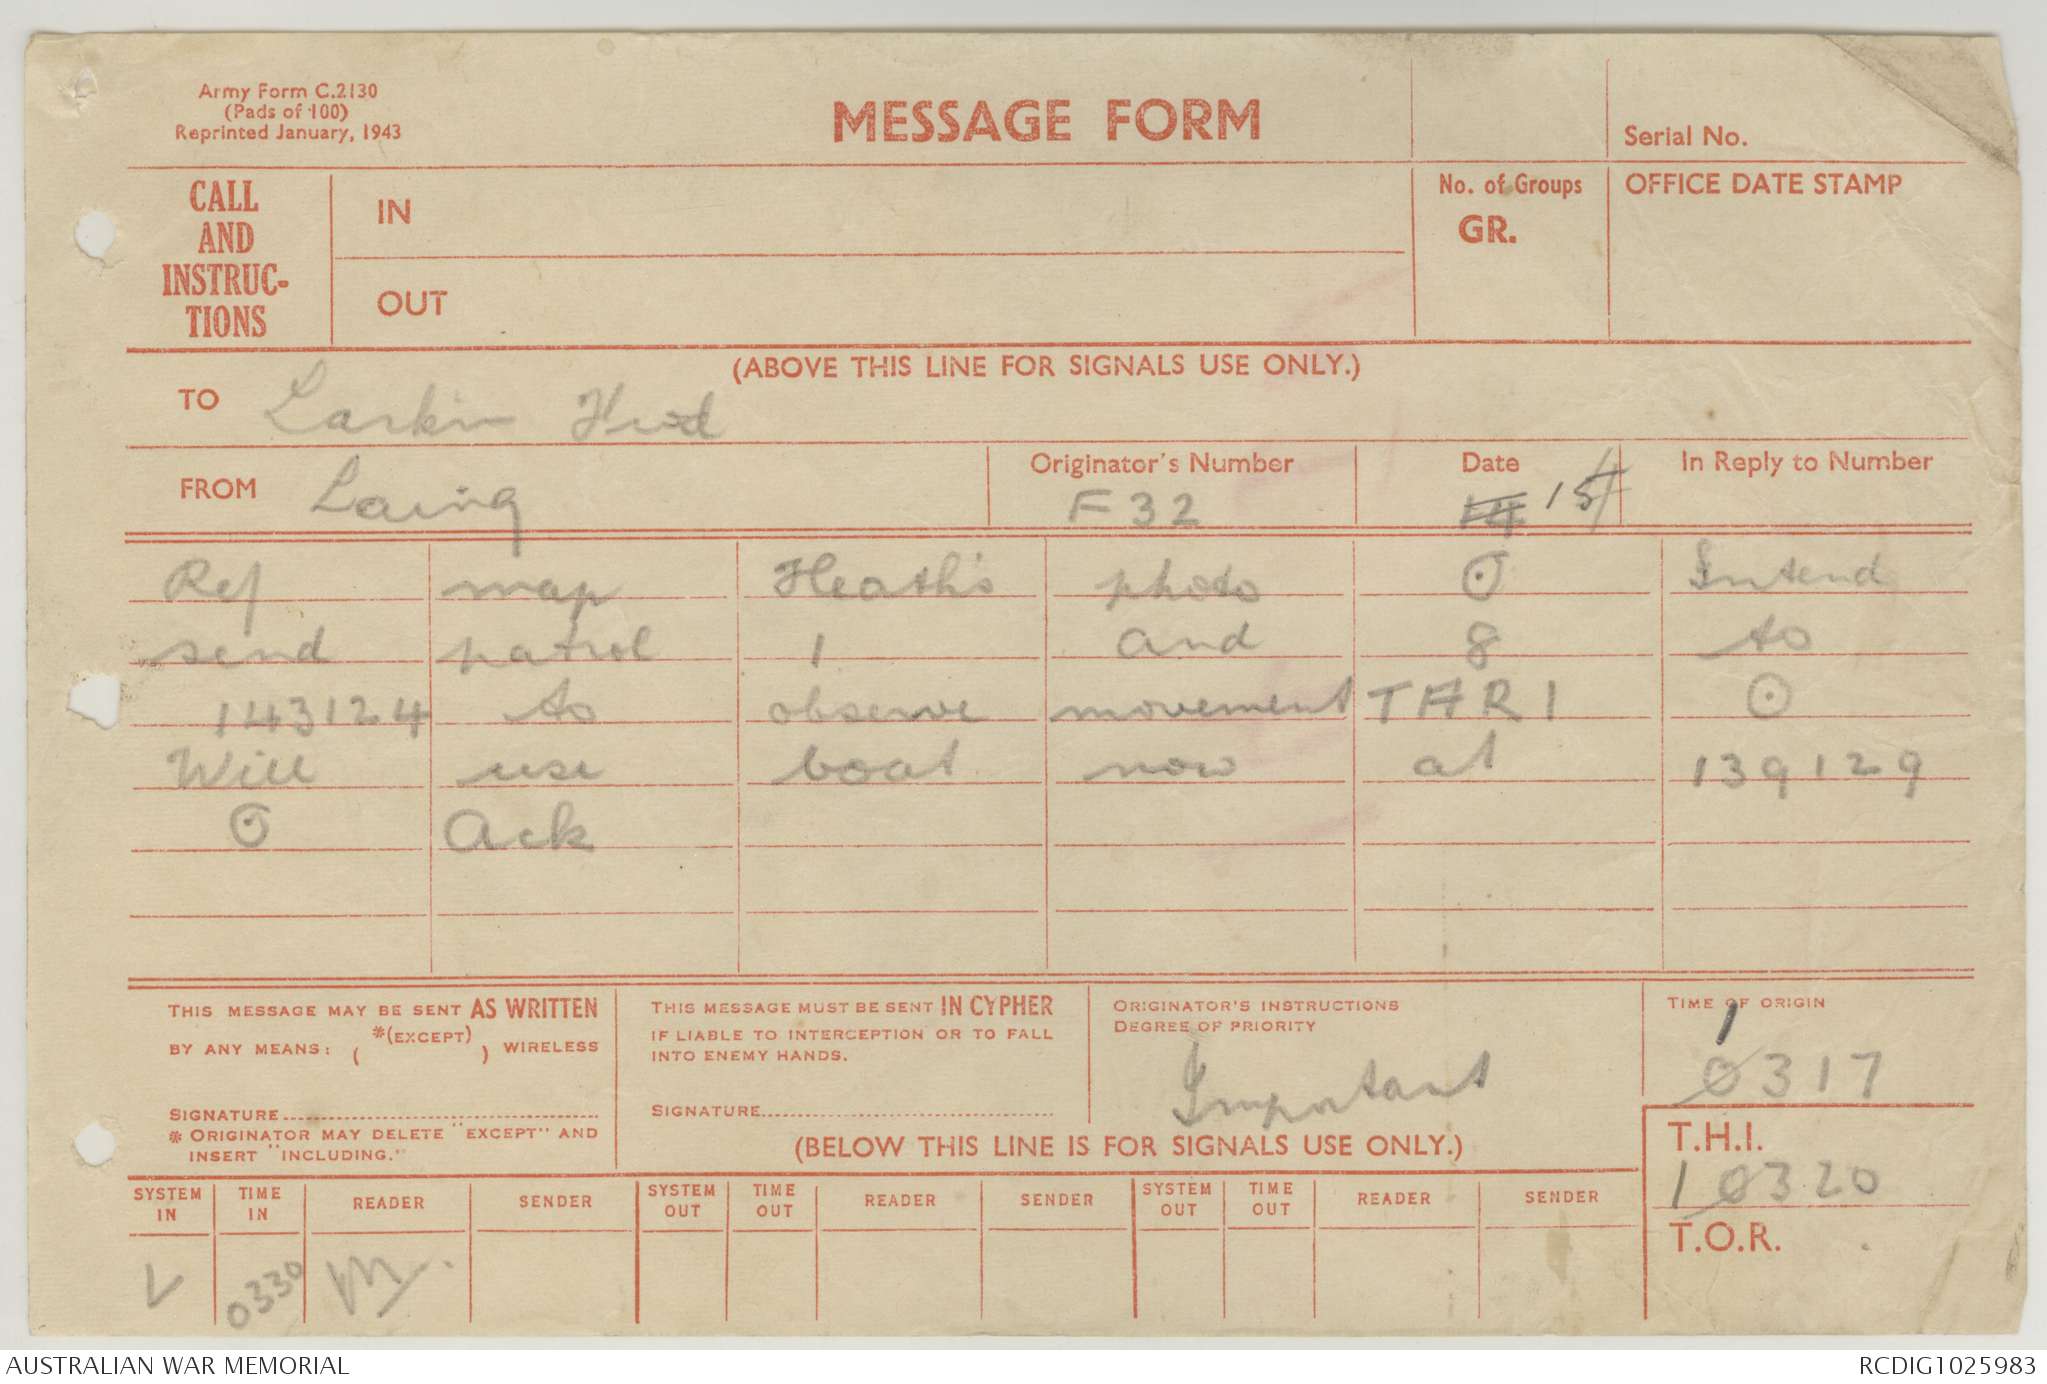 Army Form C.2130
(Pads of 100)
Reprinted January, 1943
MESSAGE FORM
Serial No.
CALL AND INSTRUC-TIONS
IN
OUT
No. of Groups
GR.
OFFICE DATE STAMP
(ABOVE THIS LINE FOR SIGNALS USE ONLY.)
TO Larkin
FROM Laing
Originator's Number
F32
Date
14 15/4
In Reply to Number
Ref map Heath's photo ⊙ Intend
send patrol 1 and 8 to
143124 to observe movement TARI ⊙
Will use boat now at 139129
⊙ Ack
THIS MESSAGE MAY BE SENT AS WRITTEN
BY ANY MEANS: *(EXCEPT) ( ) WIRELESS
SIGNATURE
* ORIGINATOR MAY DELETE "EXCEPT" AND
INSERT "INCLUDING."
THIS MESSAGE MUST BE SENT IN CYPHER
IF LIABLE TO INTERCEPTION OR TO FALL
INTO ENEMY HANDS.
SIGNATURE
ORIGINATOR'S INSTRUCTIONS
DEGREE OF PRIORITY
Important
TIME OF ORIGIN
1
0317
(BELOW THIS LINE IS FOR SIGNALS USE ONLY.)
T.H.I.
1 0320
T.O.R.
SYSTEM IN TIME IN READER SENDER SYSTEM OUT TIME OUT READER SENDER SYSTEM OUT TIME OUT READER SENDER
L 0330
AUSTRALIAN WAR MEMORIAL
RCDIG1025983